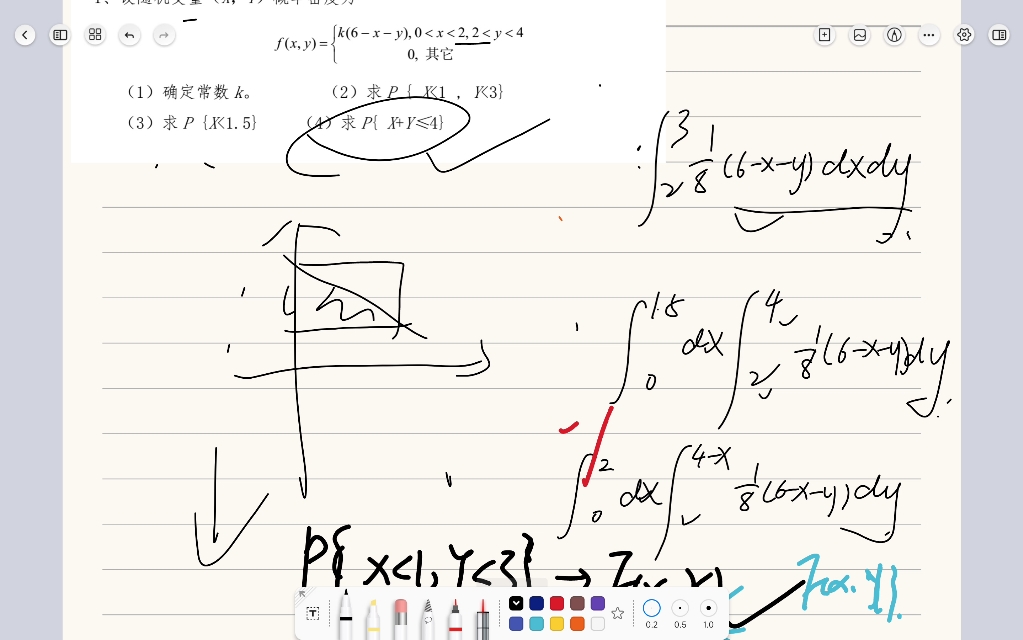 f(x, y) = { k(6 − x − y), 0 < x < 2, 2 < y < 4
0, 其它
（1）确定常数 k。 （2）求 P { X<1 , Y<3}
（3）求 P {X<1.5} （4）求 P{ X+Y≤4}
∫₂³ 1/8 (6-x-y) dxdy
∫₀^1.5 dx ∫₂⁴ 1/8 (6-x-y) dy
∫₀² dx ∫^4-x 1/8 (6-x-y) dy
P{ X<1, Y<3} →
T
0.2 0.5 1.0